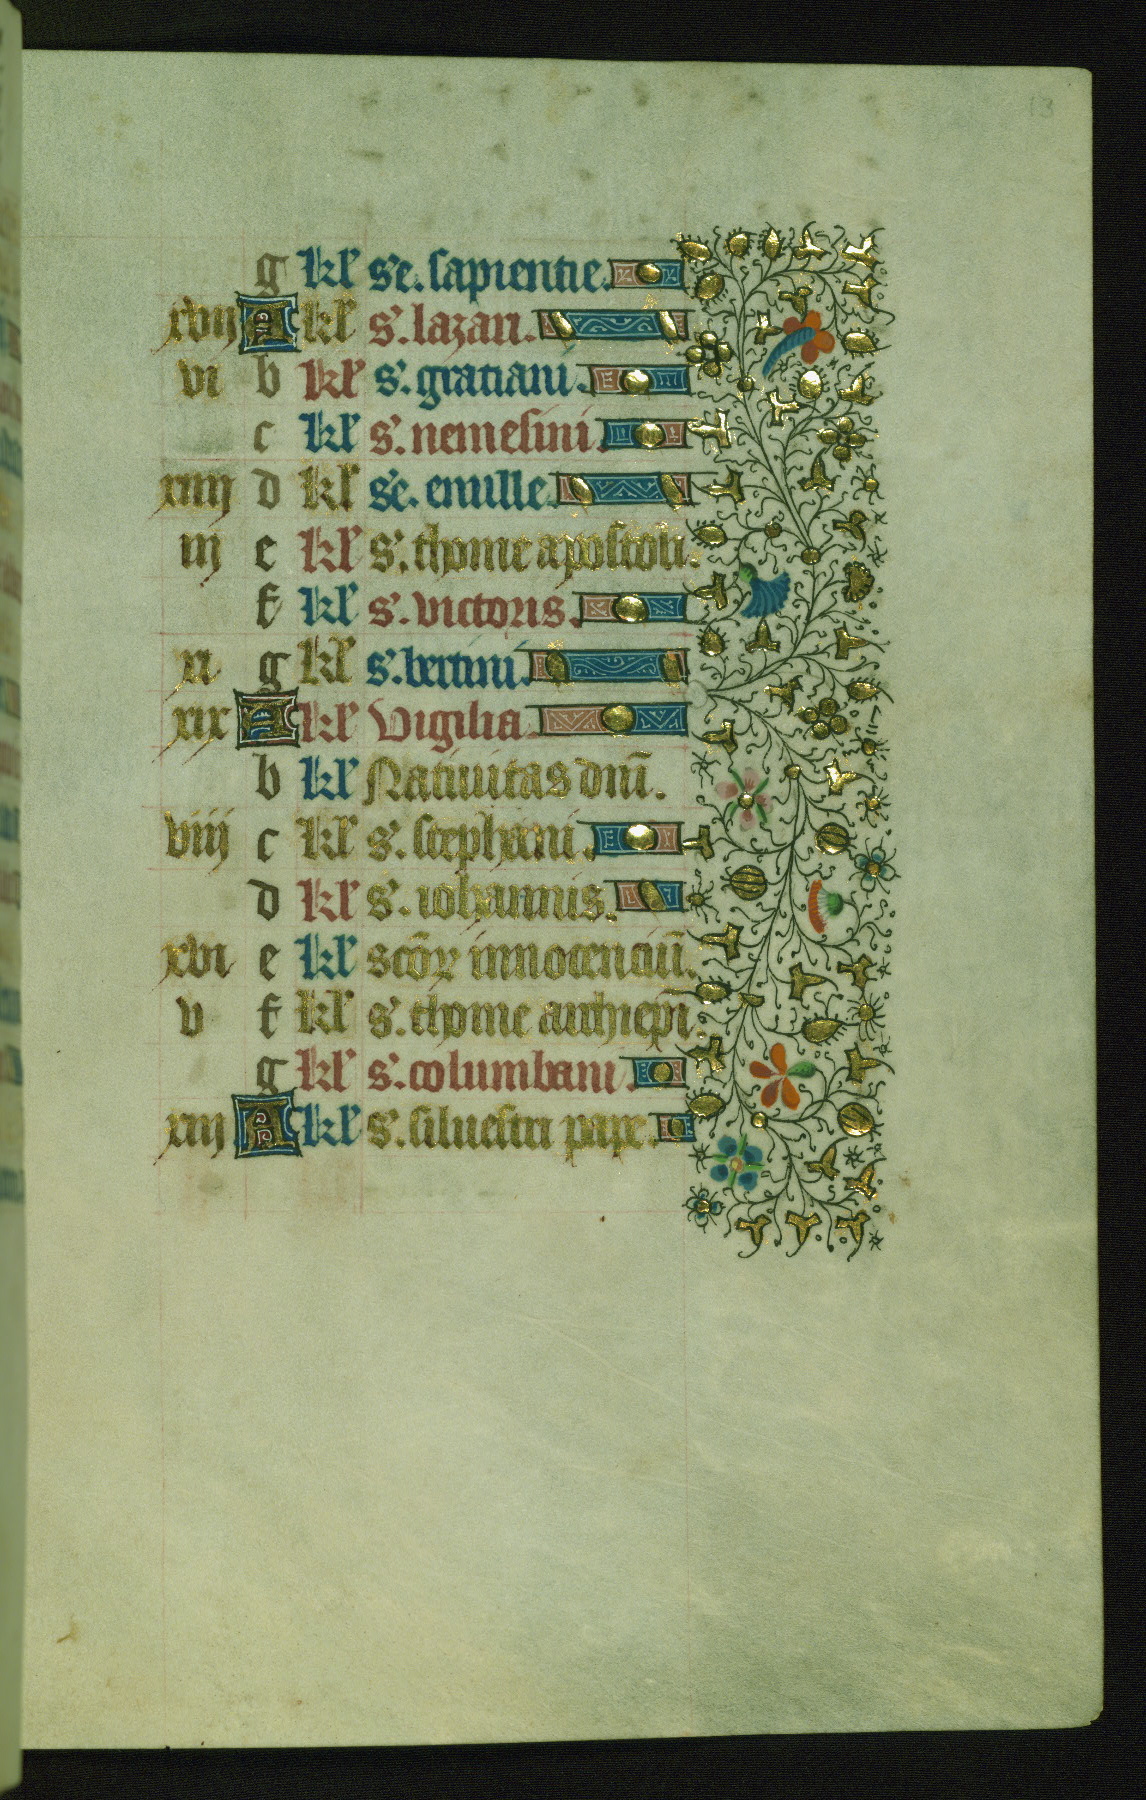 13
g kl' s'e. sapientie.
xvii A kl' s'. lazari.
vi b kl' s'. gratiani.
c kl' s'. nemesini.
xiiij d kl' s'e. enulle.
iij e kl' s'. thome apostoli.
f kl' s'. victoris.
xi g kl' s'. bertini.
xix A kl' Vigilia.
b kl' Natiuitas dn̄i.
viij c kl' s'. stephani.
d kl' s'. iohannis.
xvi e kl' sc̄oꝝ innocenciū.
v f kl' s'. thome archiep̄i.
g kl' s'. columbani.
xiij A kl' s'. siluestri pape.